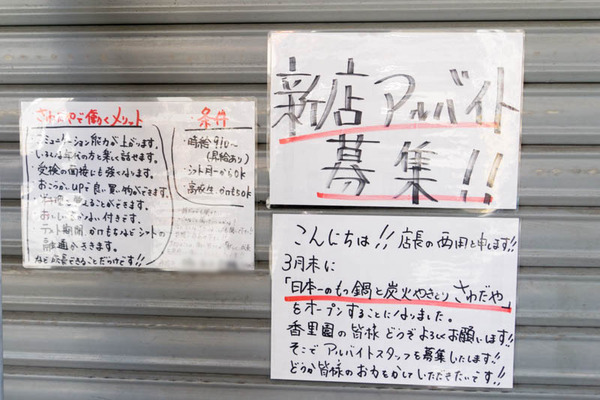 新店アルバイト
募集!!
さわだやで働くメリット
ミュニケーション能力が上がります。
いろんな年代の方と楽しく話せます。
受検の面接にも強くなります。
おこづかいUPで良い買物ができます。
ことができます。
テスト期間かけもちなどシフトの
融通がききます。
など成長できることだらけです!!
条件
・時給910〜
(昇給あり)
・シフト月一からOK
・高校生、かけもちOK
こんにちは!!店長の西田と申します!!
3月末に
「日本一のもつ鍋と炭火やきとり さわだや」
をオープンすることになりました。
香里園の皆様どうぞよろしくお願いします!!
そこでアルバイトスタッフを募集いたします!!
どうか皆様のお力をかしていただきたいです!!